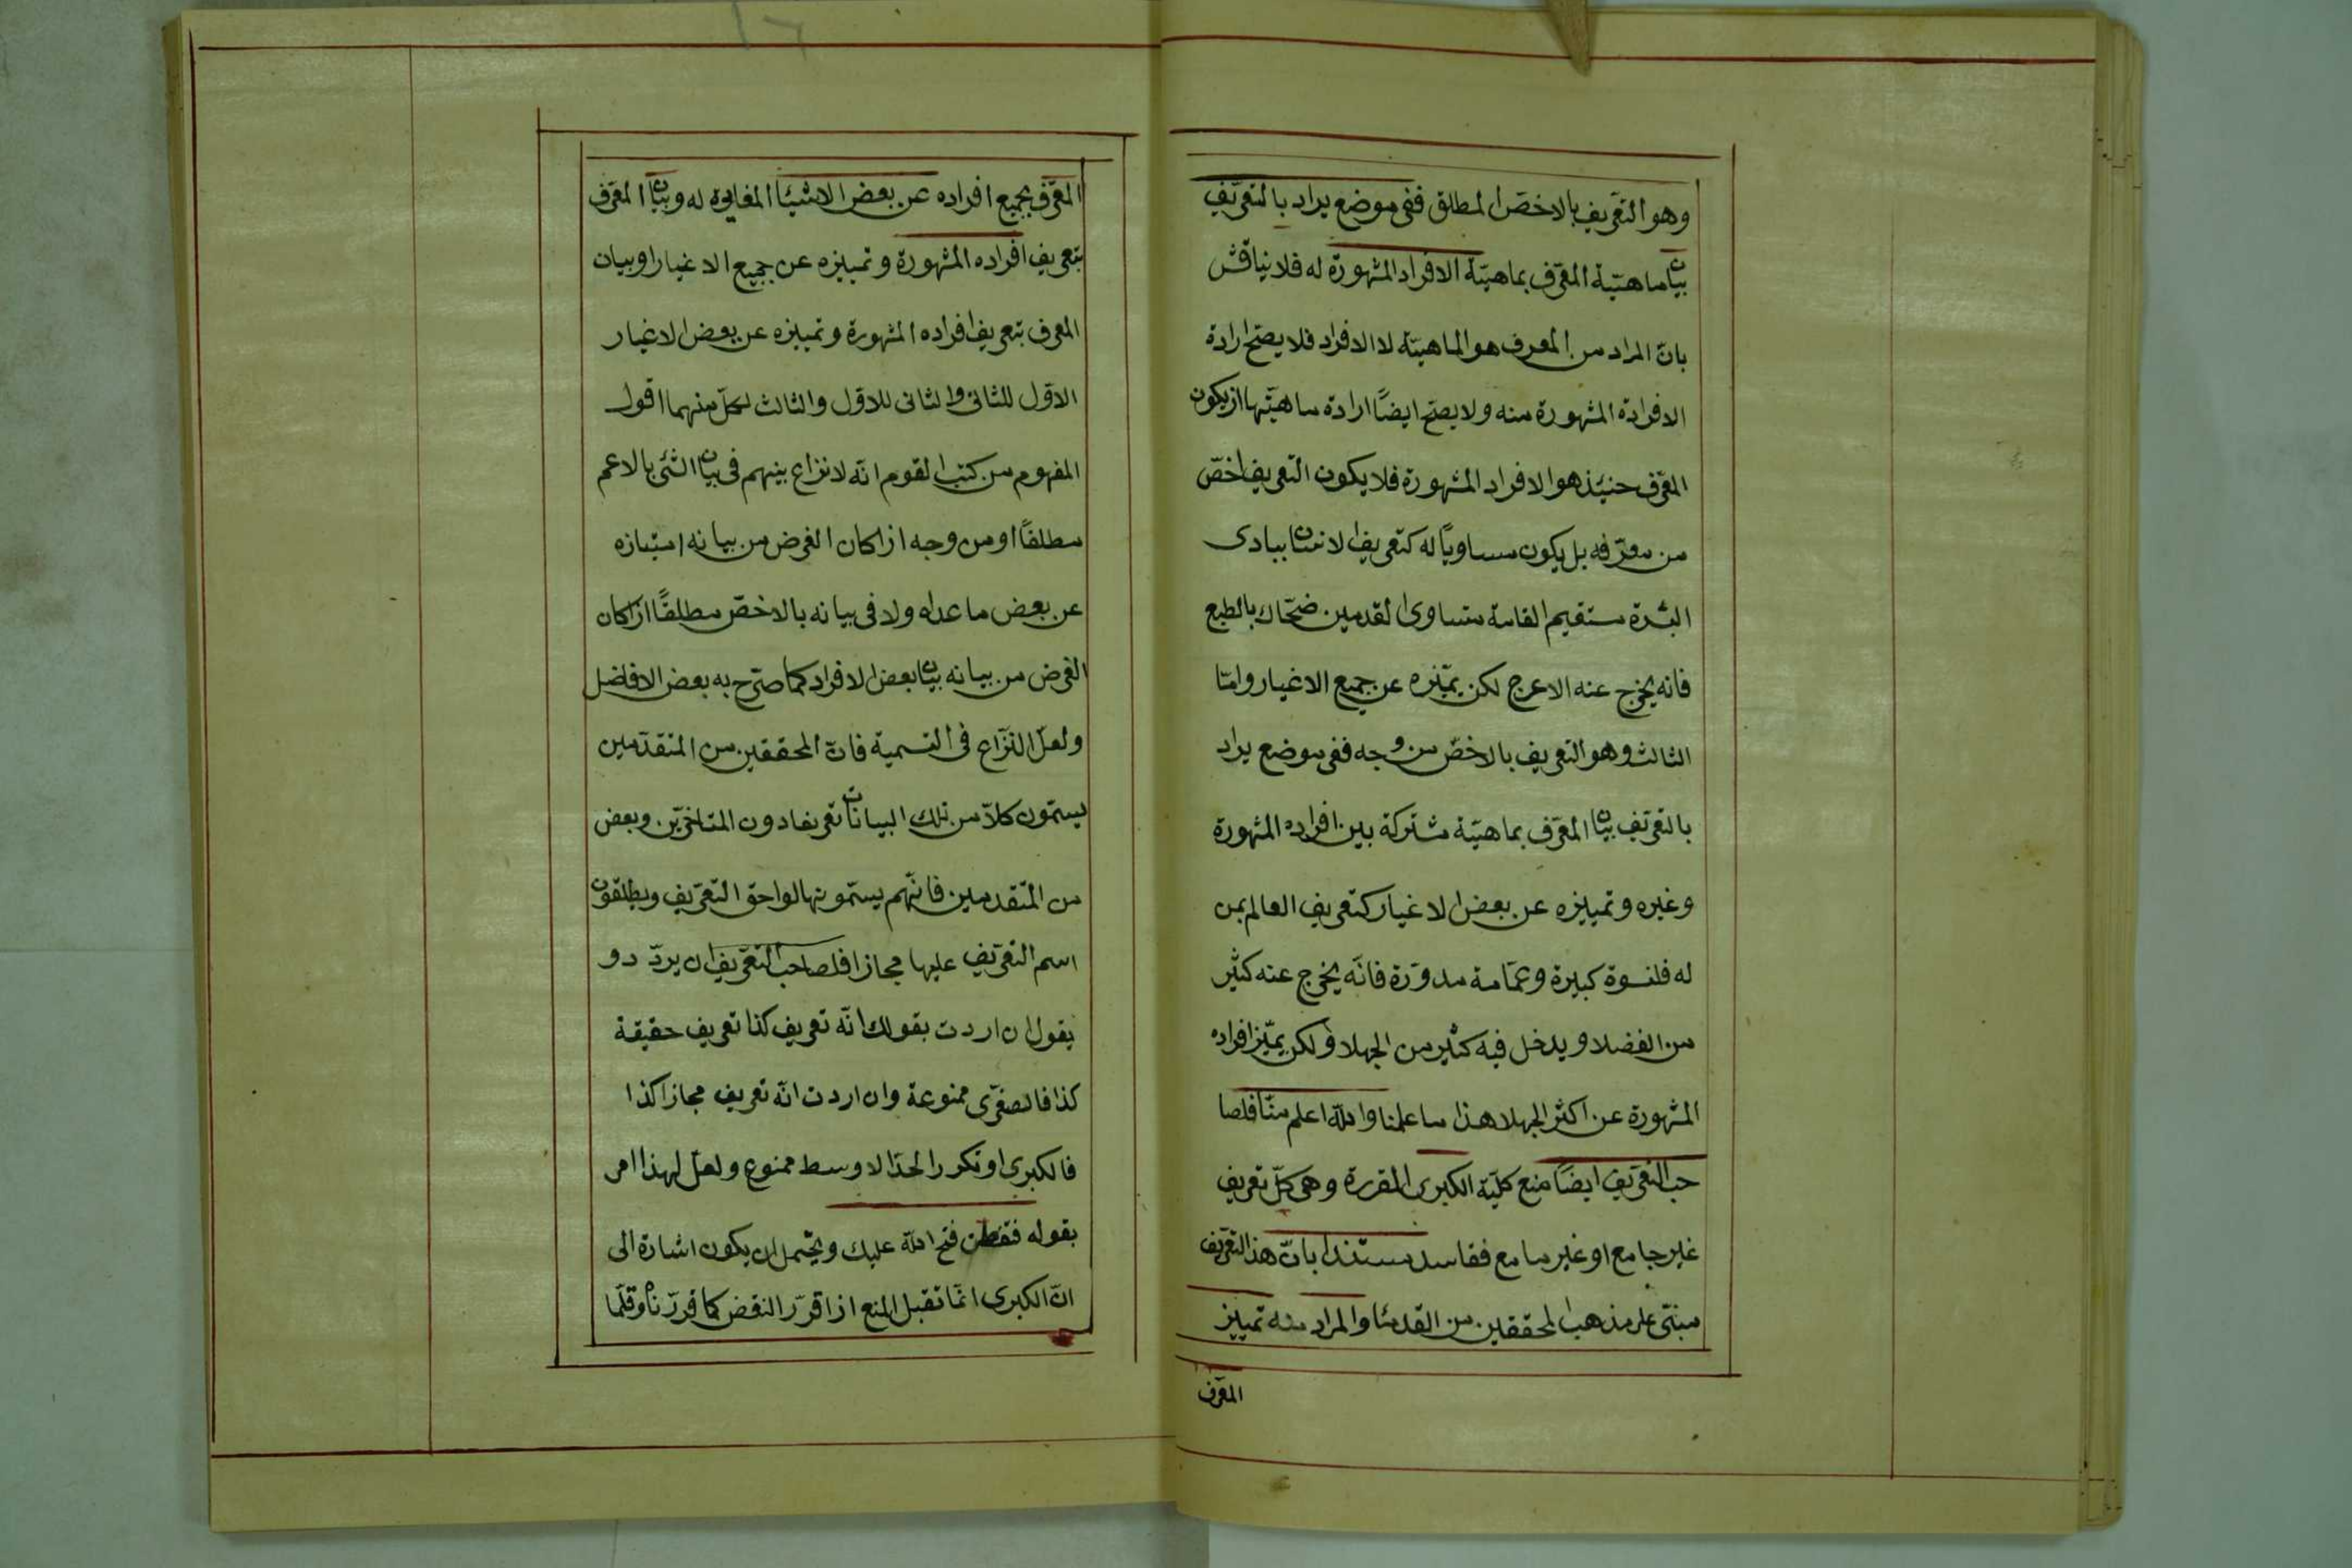 وهو التعريف بالاخصّ المطلق ففى موضع يراد بالتعريف
بيان ماهيّة المعرّف بماهيّة الافراد المشهورة له فلا يناقش
بانّ المراد من المعرف هو الماهيّة لا الافراد فلا يصحّ ارادة
الافرادة المشهورة منه ولا يصحّ ايضًا ارادة ماهيّتها اذ يكون
المعرّف حنيئذ هو الافراد المشهورة فلا يكون التعريف اخصّ
من معرّفه بل يكون مساويًا له كتعريف الانسان ببادى
البشرة مستقيم القامة متساوى القدمين ضحّاك بالطبع
فانه يخرج عنه الاعرج لكن يميّزه عن جميع الاغيار وامّا
الثالث وهو التعريف بالاخصّ من وجه ففى موضع يراد
بالتعريف بيان المعرّف بماهيّة مشتركة بين افراده المشهورة
وغيره وتمييزه عن بعض الاغيار كتعريف العالم بمن
له قلنسوة كبيرة وعمّامة مدوّرة فانّه يخرج عنه كثير
من الفضلاء ويدخل فيه كثير من الجهلاء ولكن يميّز افراده
المشهورة عن اكثر الجهلا هذا ما علمنا والله اعلم منّا فلصا
حب التعريف ايضًا منع كليّة الكبرى المقررة وهى كلّ تعريف
غير جامع او غير مامع ففاسد مستندا بانّ هذا التعريف
مبنىّ على مذهب المحققين من القدماء والمراد منه تمييز
المعرّف
المعرّف بجميع افراده عن بعض الاشياء المغايرة له وبيان المعرّف
بتعريف افراده المشهورة وتمييزه عن جميع الاغيار او بيان
المعرف بتعريف افراده المشهورة وتمييزه عن بعض الاغيار
الاوّل للثانى والثانى للاوّل والثالث لكلّ منهما اقول
المفهوم من كتب القوم انّه لانزاع بينهم فى بيان الشئ بالاعم
مطلقًا او من وجه اذا كان الغرض من بيانه امتيازه
عن بعض ما عداه ولا فى بيانه بالاخصّ مطلقًا اذا كان
الغرض من بيانه بيان بعض الافراد كما صرّح به بعض الافاضل
ولعلّ النّزاع فى التسمية فانّ المحققين من المتقدّمين
يسمّون كلاّ من تلك البيانات تعريفا دون المتاخرّين وبعض
من المتّقدمين فانّهم يسمّونها لواحق التعريف ويطلقون
اسم التعرّيف عليها مجازا فلصاحب التعريف ان يردّد و
يقول ان اردت بقولك انّه تعريف كذا تعريف حقيقة
كذا فالصغرى ممنوعة وان اردت انّه تعريف مجازا كذا
فالكبرى او تكرر الحدّ الاوسط ممنوع ولعلّ لهذا امر
بقوله فتفطن فتح الله عليك ويحتمل ان يكون اشارة الى
انّ الكبرى انّما تقبل المنع اذا قرّر النقض كما قررّناه وقلّما